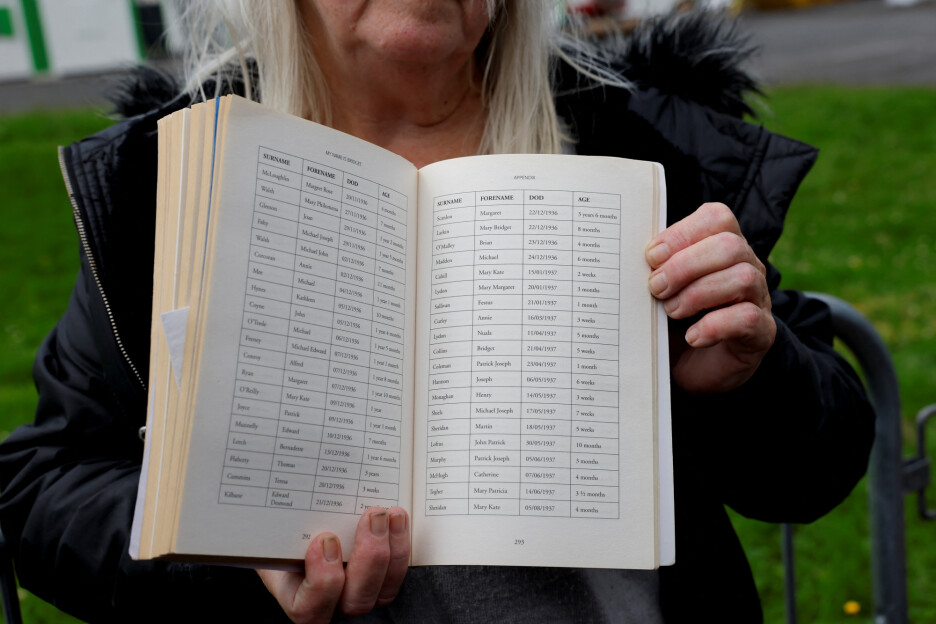 MY NAME IS BRIDGET
SURNAME FORENAME DOD AGE
McLoughlin Margaret Rose 20/11/1936
Walsh Mary Philomena 27/11/1936
Glennon Joan 29/11/1936
Fahy Michael Joseph 29/11/1936
Walsh Michael John 02/12/1936
Corcoran Annie 02/12/1936
Moo Michael 04/12/1936
Hynes Kathleen 05/12/1936
Coyne John 05/12/1936
O'Toole Michael 07/12/1936
Feeney Michael Edward 07/12/1936
Conroy Alfred 07/12/1936
Ryan Margaret 07/12/1936
O'Reilly Mary Kate 09/12/1936 1 year
Joyce Patrick 09/12/1936
Munnelly Edward 10/12/1936 7 months
Leech Bernadette 13/12/1936
Flaherty Thomas 20/12/1936 3 years
Cummins Teresa 20/12/1936 3 weeks
Kilbane Edward Desmond 21/12/1936
APPENDIX
SURNAME FORENAME DOD AGE
Scanlon Margaret 22/12/1936 3 years 6 months
Larken Mary Bridget 22/12/1936 8 months
O'Malley Brian 23/12/1936 4 months
Madden Michael 24/12/1936 6 months
Cahill Mary Kate 15/01/1937 2 weeks
Lydon Mary Margaret 20/01/1937 3 months
Sullivan Festus 21/01/1937 1 month
Curley Annie 16/03/1937 3 weeks
Lydon Nuala 11/04/1937 5 months
Collins Bridget 21/04/1937 5 weeks
Coleman Patrick Joseph 23/04/1937 1 month
Hannon Joseph 06/05/1937 6 weeks
Monaghan Henry 14/05/1937 3 weeks
Beech Michael Joseph 17/05/1937 7 weeks
Sheridan Martin 18/05/1937 5 weeks
Loftus John Patrick 30/05/1937 10 months
Murphy Patrick Joseph 05/06/1937 3 months
McHugh Catherine 07/06/1937 4 months
Togher Mary Patricia 14/06/1937 3 ½ months
Sheridan Mary Kate 05/08/1937 4 months
293